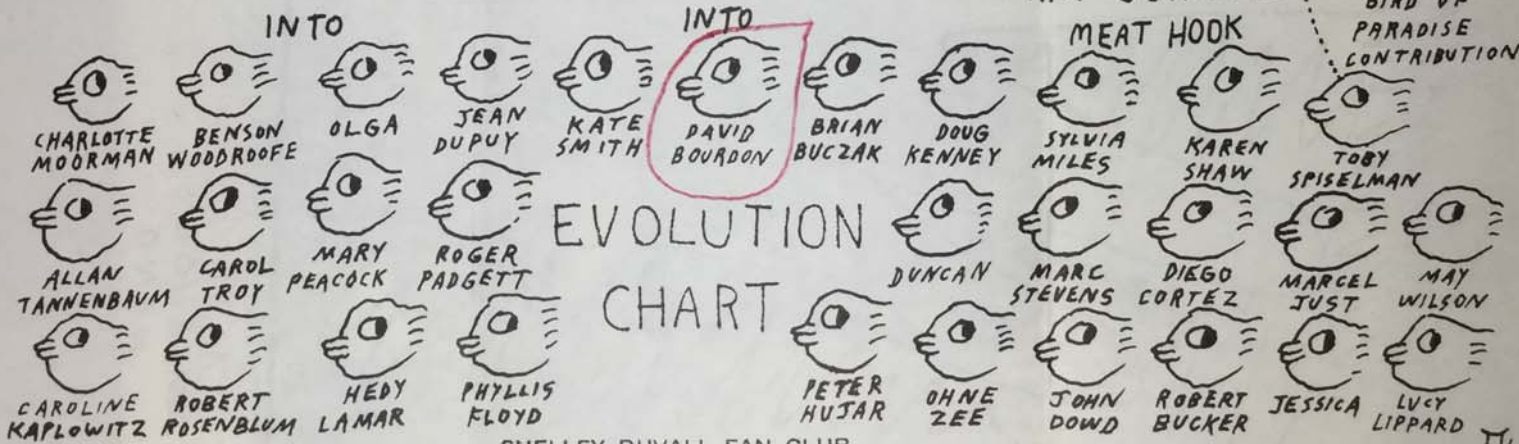 INTO
INTO
MEAT HOOK
PARADISE
CONTRIBUTION
CHARLOTTE
MOORMAN
BENSON
WOODROOFE
OLGA
JEAN
DUPUY
KATE
SMITH
DAVID
BOURDON
BRIAN
BUCZAK
DOUG
KENNEY
SYLVIA
MILES
KAREN
SHAW
TOBY
SPISELMAN
ALLAN
TANNENBAUM
CAROL
TROY
MARY
PEACOCK
ROGER
PADGETT
EVOLUTION
CHART
DUNCAN
MARC
STEVENS
DIEGO
CORTEZ
MARCEL
JUST
MAY
WILSON
CAROLINE
KAPLOWITZ
ROBERT
ROSENBLUM
HEDY
LAMAR
PHYLLIS
FLOYD
PETER
HUJAR
OHNE
ZEE
JOHN
DOWD
ROBERT
BUCKER
JESSICA
LUCY
LIPPARD
SHELLEY DUVALL FAN CLUB